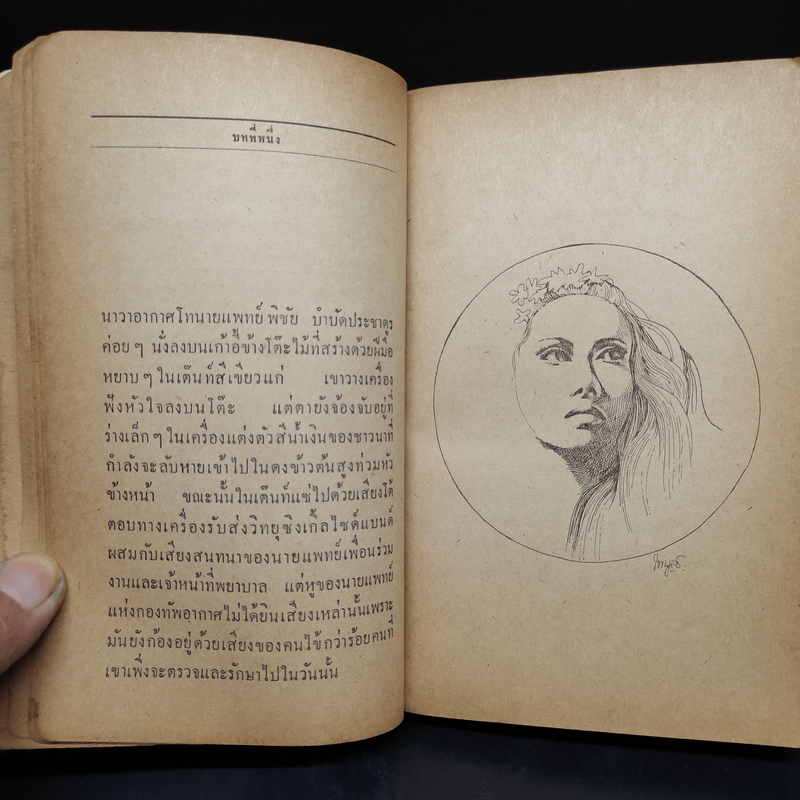 บทที่หนึ่ง
นาวาอากาศโทนายแพทย์ พิชัย บำบัดประชาดูร
ค่อย ๆ นั่งลงบนเก้าอี้ข้างโต๊ะไม้ที่สร้างด้วยฝีมือ
หยาบ ๆ ในเต๊นท์สีเขียวแก่ เขาวางเครื่อง
ฟังหัวใจลงบนโต๊ะ แต่ตายังจ้องจับอยู่ที่
ร่างเล็ก ๆ ในเครื่องแต่งตัวสีน้ำเงินของชาวนาที่
กำลังจะลับหายเข้าไปในดงข้าวต้นสูงท่วมหัว
ข้างหน้า ขณะนั้นในเต๊นท์แซ่ไปด้วยเสียงโต้
ตอบทางเครื่องรับส่งวิทยุซิงเกิ้ลไซด์แบนด์
ผสมกับเสียงสนทนาของนายแพทย์เพื่อนร่วม
งานและเจ้าหน้าที่พยาบาล แต่หูของนายแพทย์
แห่งกองทัพอากาศไม่ได้ยินเสียงเหล่านั้นเพราะ
มันยังก้องอยู่ด้วยเสียงของคนไข้กว่าร้อยคนที่
เขาเพิ่งจะตรวจและรักษาไปในวันนั้น